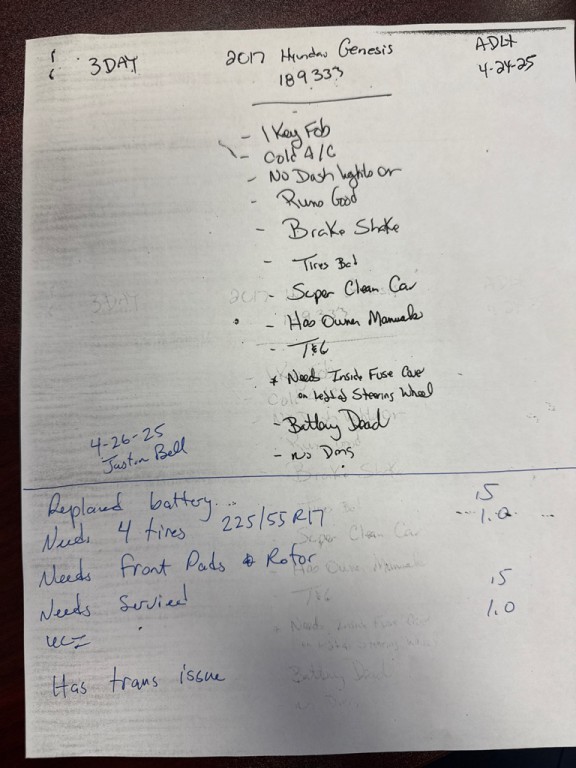 3 DAY
2017 Hyundai Genesis
ADLX
189,333
4-24-25
- 1 Key Fob
- Cold A/C
- No Dash lights on
- Runs Good
- Brake Shake
- Tires Bad
- Super Clean Car
- Has Owner Manuals
- T&G
* Needs Inside Fuse Cover
on Left of Steering Wheel
- Battery Dead
- No Dings
4-26-25
Justin Bell
Replaced battery... .5
Needs 4 tires 225/55 R17 1.0
Needs Front Pads & Rotor
Needs Serviced .5
1.0
Has trans issue